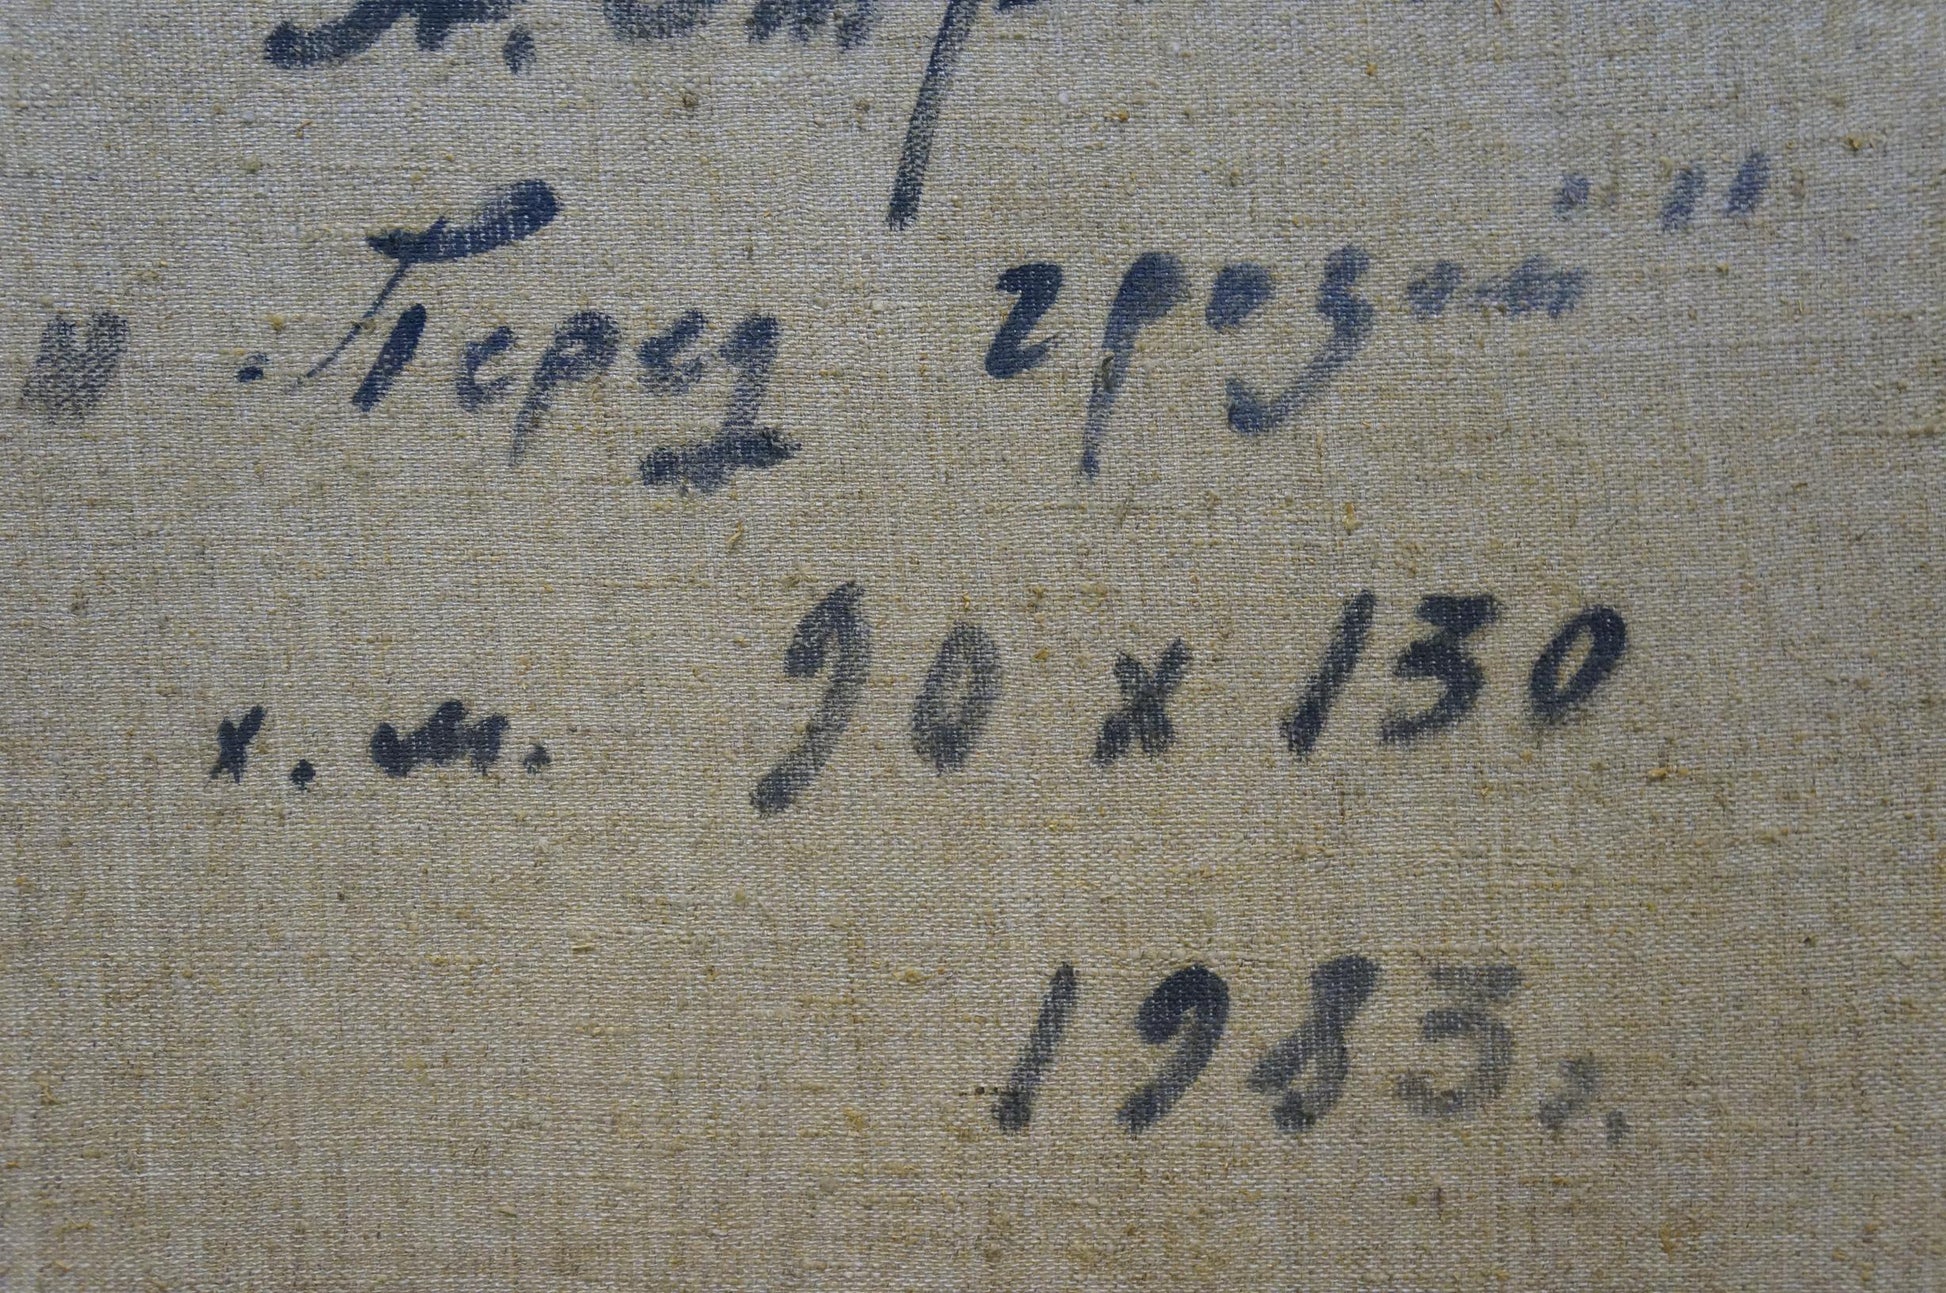 "Перед грозой"
х. м. 90 х 130
1983 г.